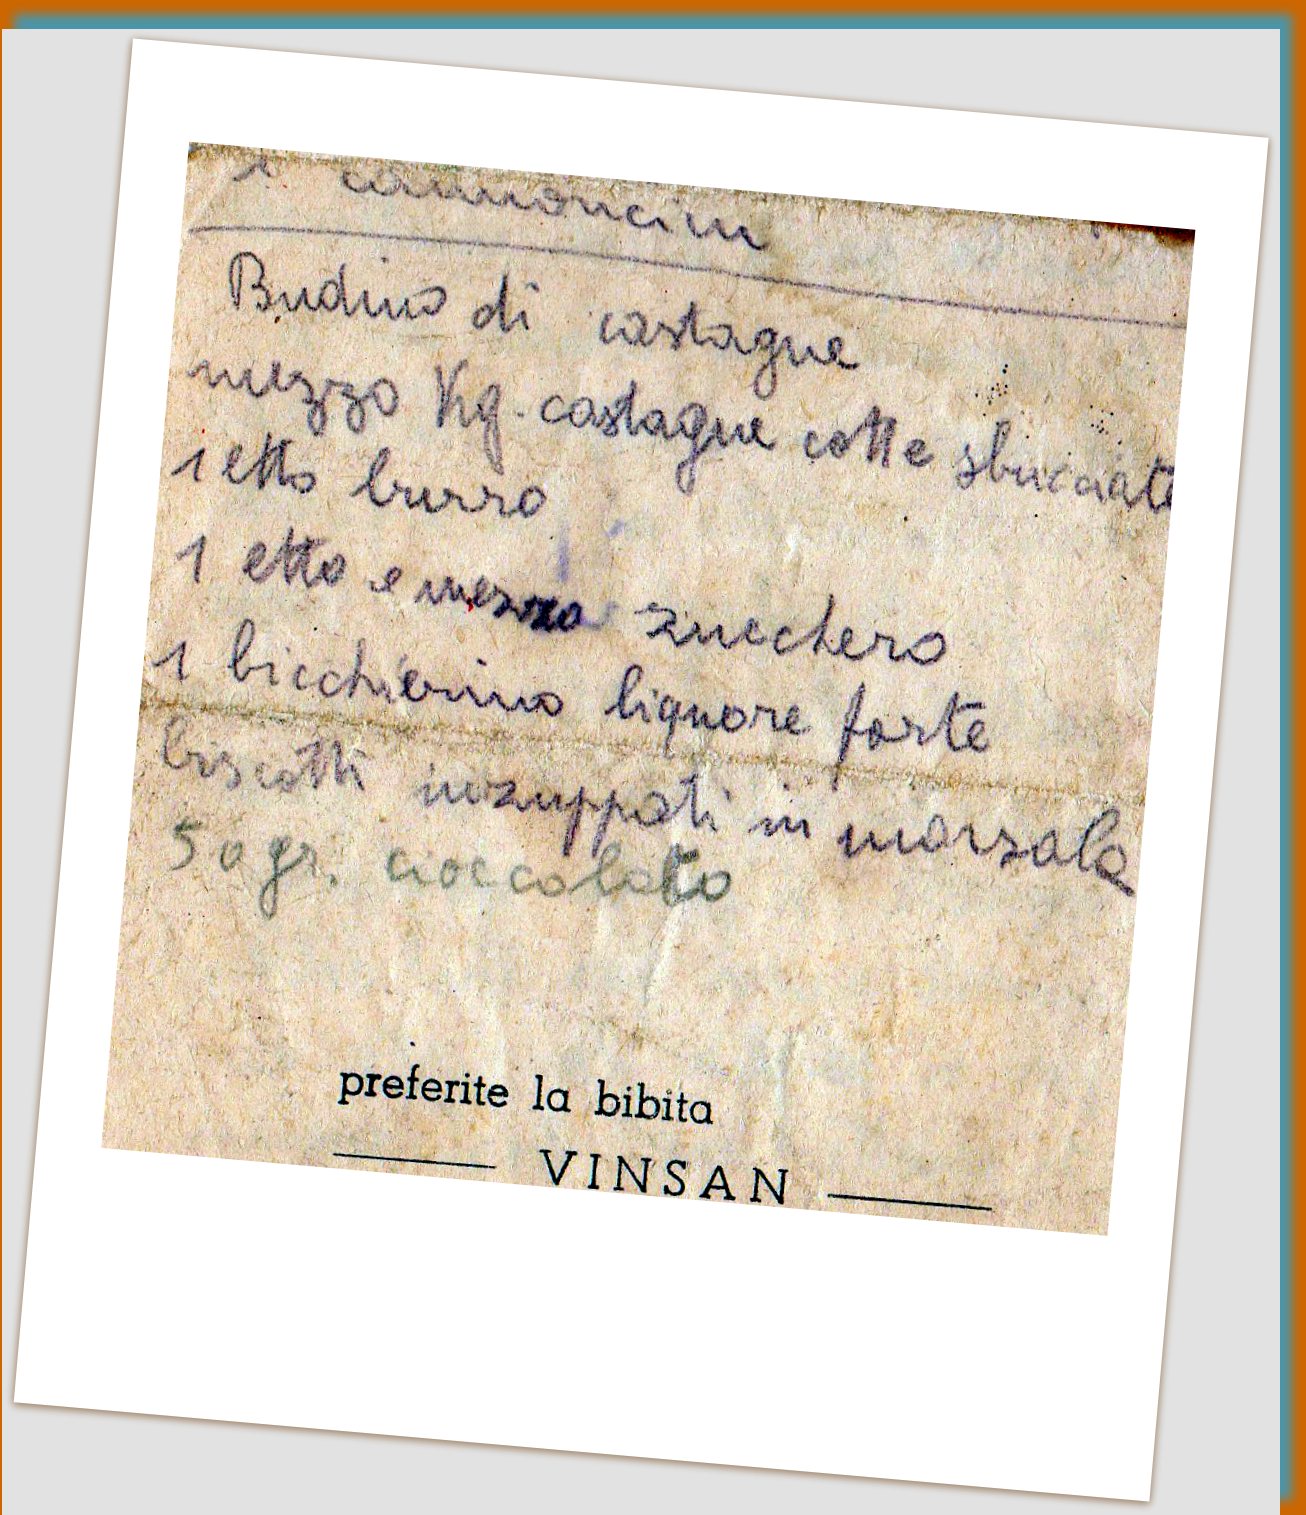 i cannoncini
Budino di castagne
mezzo Kg. castagne cotte sbucciate
1 etto burro
1 etto e mezzo zucchero
1 bicchierino liquore forte
biscotti inzuppati in marsala
50 gr. cioccolato
preferite la bibita
VINSAN